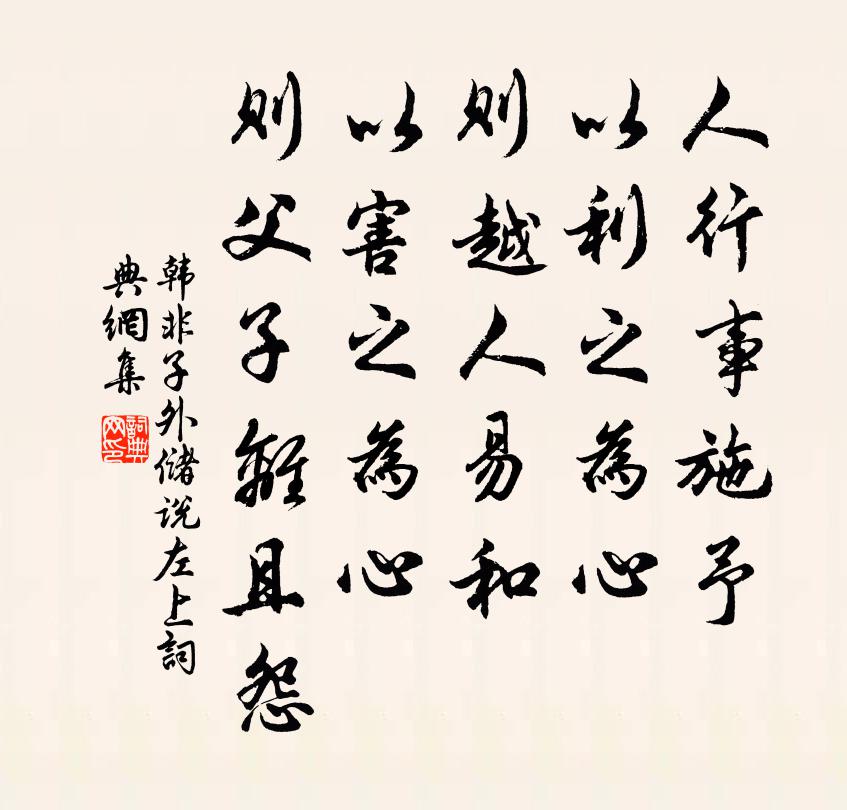 人行事施予
以利之為心
則越人易和
以害之為心
則父子離且怨
韩非子外儲说左上詞
典網集
詞典
网印